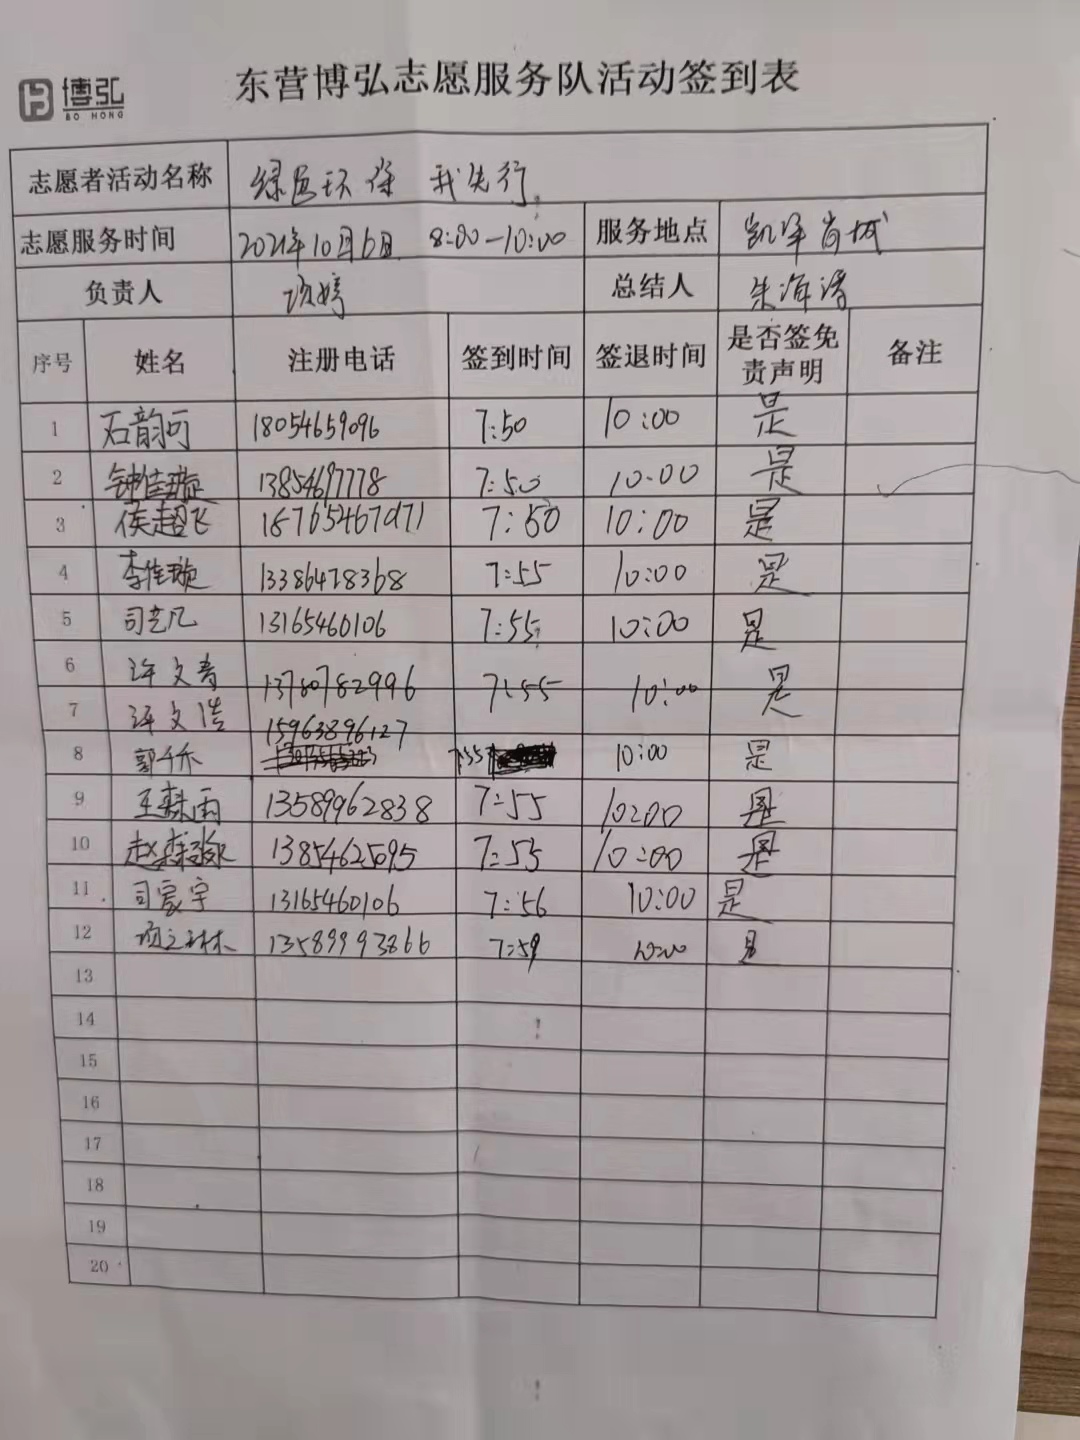 博弘
BO HONG
东营博弘志愿服务队活动签到表
志愿者活动名称 绿色环保 我先行
志愿服务时间 2021年10月6日 8:00-10:00 服务地点 凯泽尚城
负责人 项婷 总结人 朱海涛
序号 姓名 注册电话 签到时间 签退时间 是否签免责声明 备注
1 石韵可 18054659096 7:50 10:00 是
2 钟佳璇 13854697778 7:50 10:00 是
3 侯超飞 7:50 10:00 是
4 李佳璇 13386478368 7:55 10:00 是
5 司艺凡 13165460106 7:55 10:00 是
6 许文青 13780782996 7:55 10:00 是
7 许文浩
8 郭千乔 15963896127 7:55 10:00 是
9 王森雨 13589962838 7:55 10:00 是
10 赵森 13854625095 7:55 10:00 是
11 司宸宇 13165460106 7:56 10:00 是
12 项之林 13589993866 7:59 10:00 是
13
14
15
16
17
18
19
20